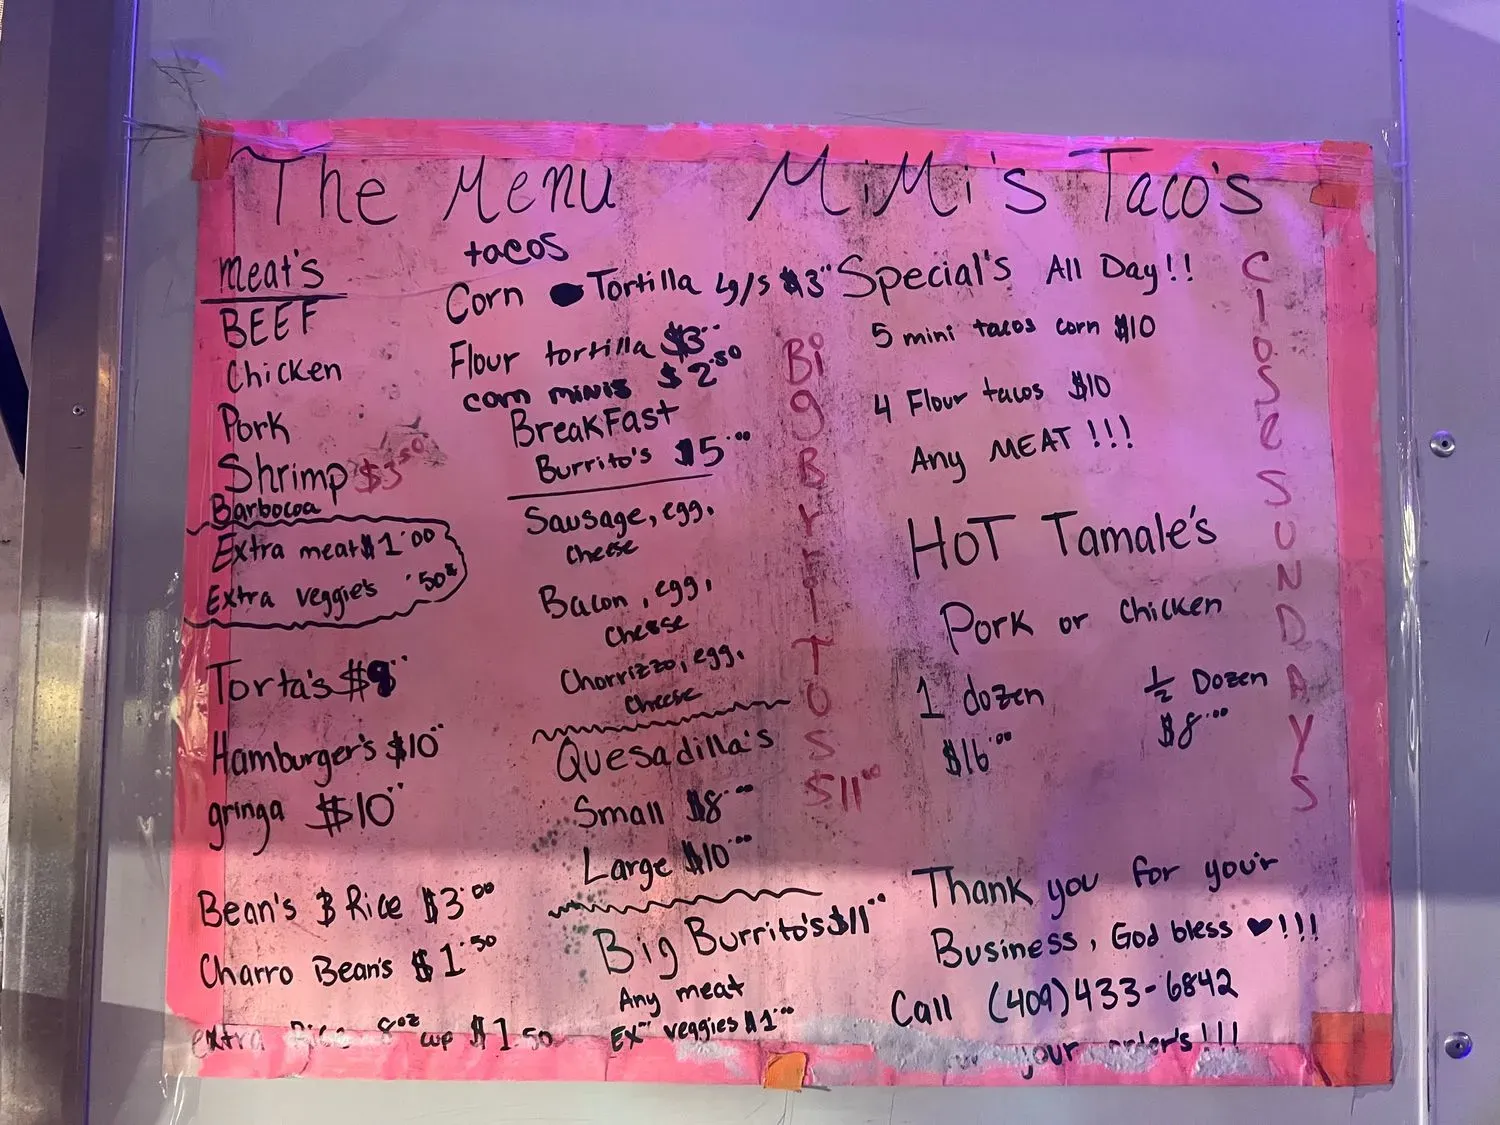 The Menu MiMi's Taco's
meat's
BEEF
Chicken
Pork
Shrimp $3.50
Barbocoa
Extra meat $1.00
Extra veggie's .50¢
Torta's
Hamburger's $10
gringa $10
Bean's & Rice $3.00
Charro Bean's $1.50
extra Rice 8oz cup $1.50
tacos
Corn Tortilla Lg/s $3
Flour tortilla $3
corn minis $2.50
BreakFast
Burrito's $5.00
Sausage, egg,
cheese
Bacon, egg,
cheese
Chorrizzo, egg,
cheese
Quesadilla's
Small $8.00
Large $10.00
Big Burrito's $11
Any meat
EX veggies $1.00
Big BurriTOS $11.00
Special's All Day!!
5 mini tacos corn $10
4 Flour tacos $10
Any MEAT!!!
HOT Tamale's
Pork or chicken
1 dozen 1/2 Dozen
$16.00 $8.00
Thank you for your
Business, God bless ♥!!!
Call (409)433-6842
your order's!!!
Close SUNDAYS